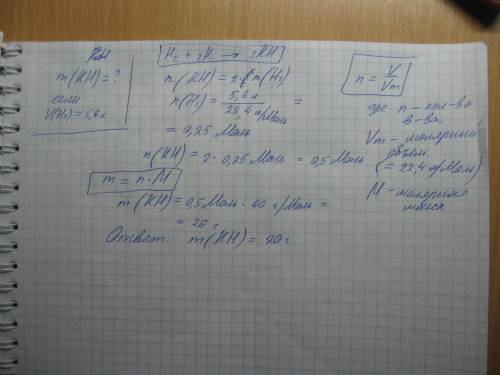 KH
m(KH) = ?
если
V(H₂) = 5,6 л
H₂ + 2K → 2KH
n(KH) = 2 · n(H₂)
n(H₂) = 5,6 л / 22,4 л/Моль =
= 0,25 Моль
n(KH) = 2 · 0,25 Моль = 0,5 Моль
m = n · M
m(KH) = 0,5 Моль · 40 г/Моль =
= 20 г
Ответ: m(KH) = 20 г
n = V / Vm
где n - кол-во
в-ва
Vm - молярный
объём
(= 22,4 л/Моль)
M - молярная
масса